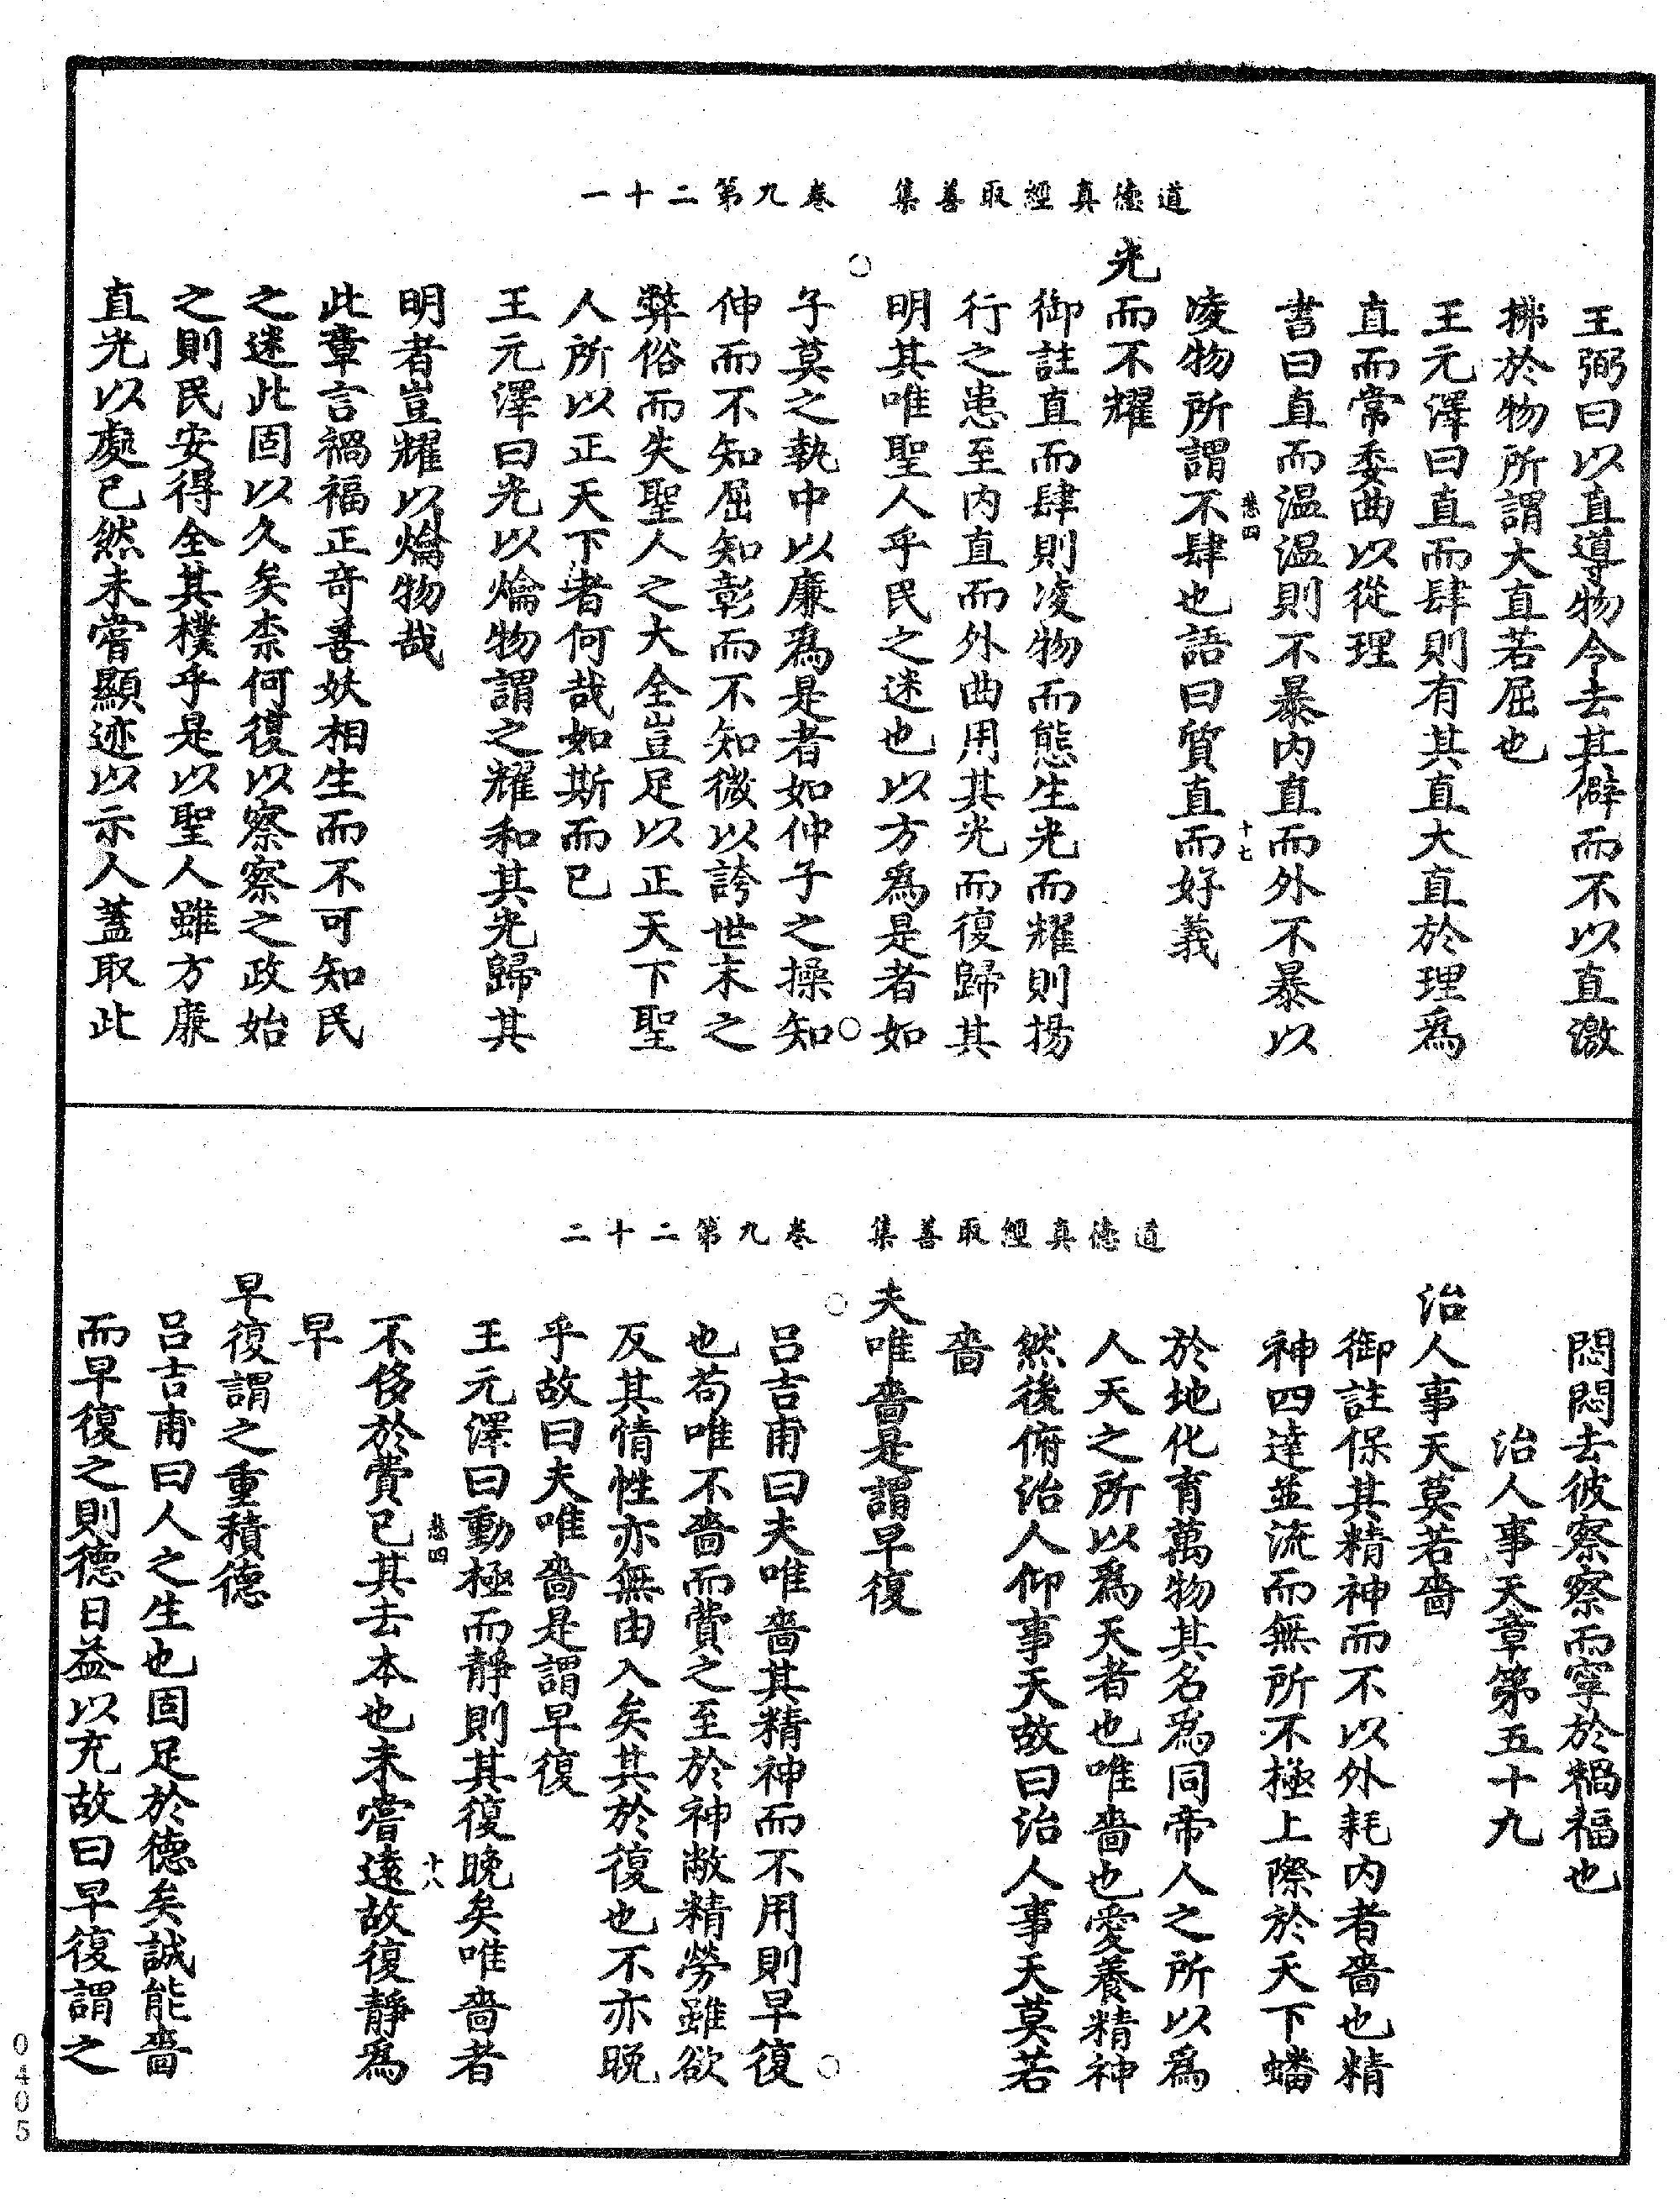 道德真經取善集　卷九第二十一
王弼曰以直導物令去其僻而不以直激
拂於物所謂大直若屈也
王元澤曰直而肆則有其直大直於理爲
直而常委曲以從理
書曰直而温温則不暴内直而外不暴以
悲四　十七
凌物所謂不肆也語曰質直而好義
光而不耀
御註直而肆則凌物而態生光而耀則揚
行之患至内直而外曲用其光而復歸其
明其唯聖人乎民之迷也以方爲是者如
子莫之執中以廉爲是者如仲子之操知
伸而不知屈知彰而不知微以誇世末之
弊俗而失聖人之大全豈足以正天下聖
人所以正天下者何哉如斯而已
王元澤曰光以爚物謂之耀和其光歸其
明者豈耀以爚物哉
此章言禍福正奇善妖相生而不可知民
之迷此固以久矣柰何復以察察之政始
之則民安得全其樸乎是以聖人雖方廉
直光以處已然未嘗顯迹以示人蓋取此
道德真經取善集　卷九第二十二
悶悶去彼察察而寧於禍福也
治人事天章第五十九
治人事天莫若嗇
御註保其精神而不以外耗内者嗇也精
神四達並流而無所不極上際於天下蟠
於地化育萬物其名爲同帝人之所以爲
人天之所以爲天者也唯嗇也愛養精神
然後俯治人仰事天故曰治人事天莫若
嗇
夫唯嗇是謂早復
吕吉甫曰夫唯嗇其精神而不用則早復
也苟唯不嗇而費之至於神敝精勞雖欲
反其情性亦無由入矣其於復也不亦晩
乎故曰夫唯嗇是謂早復
王元澤曰動極而靜則其復晩矣唯嗇者
悲四　十八
不侈於費已其去本也未嘗遠故復靜爲
早
早復謂之重積德
吕吉甫曰人之生也固足於德矣誠能嗇
而早復之則德日益以充故曰早復謂之
0405